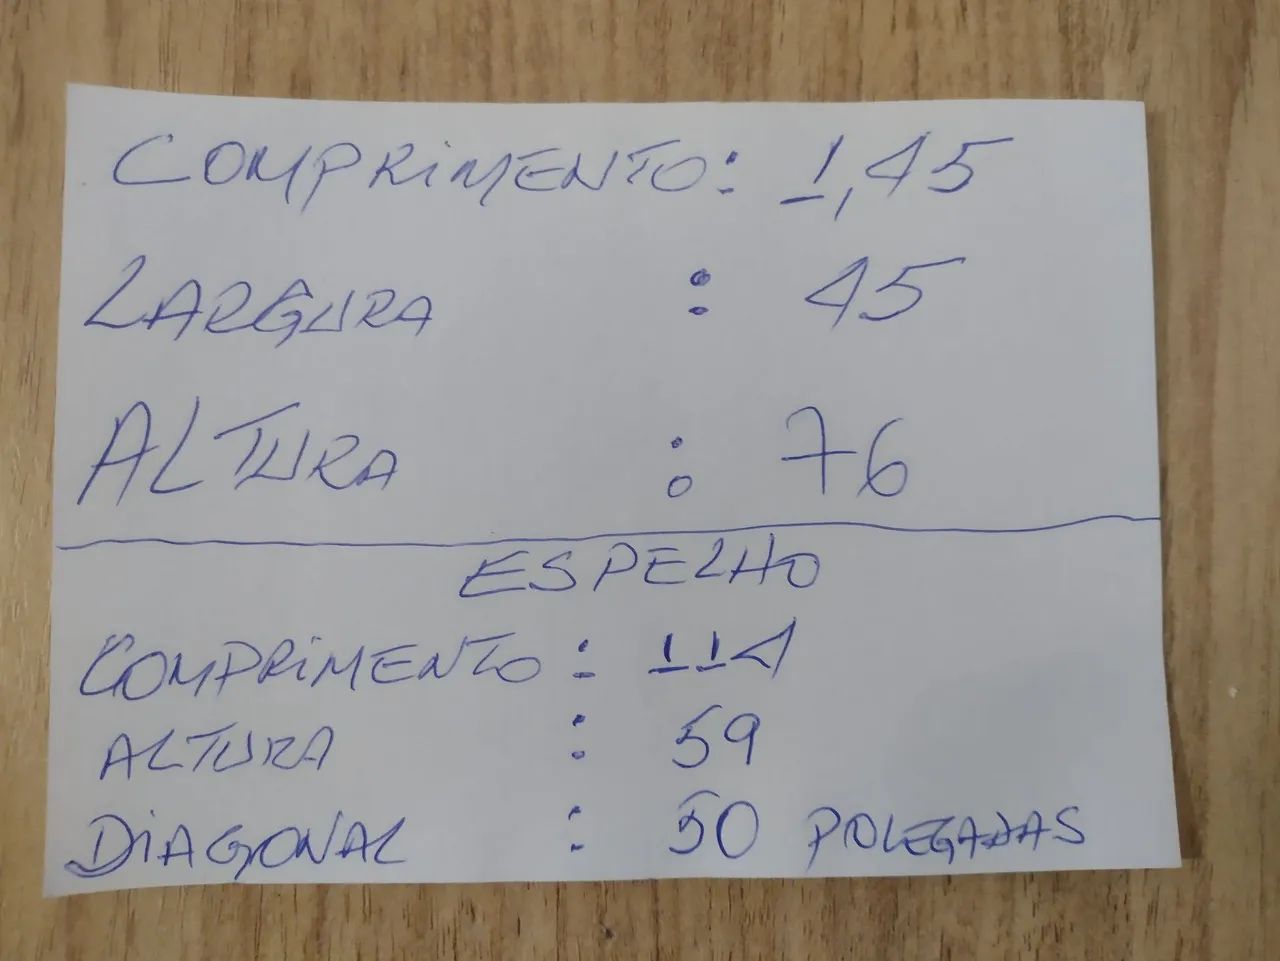 COMPRIMENTO: 1,45
LARGURA : 45
ALTURA : 76
ESPELHO
COMPRIMENTO : 114
ALTURA : 59
DIAGONAL : 50 POLEGADAS